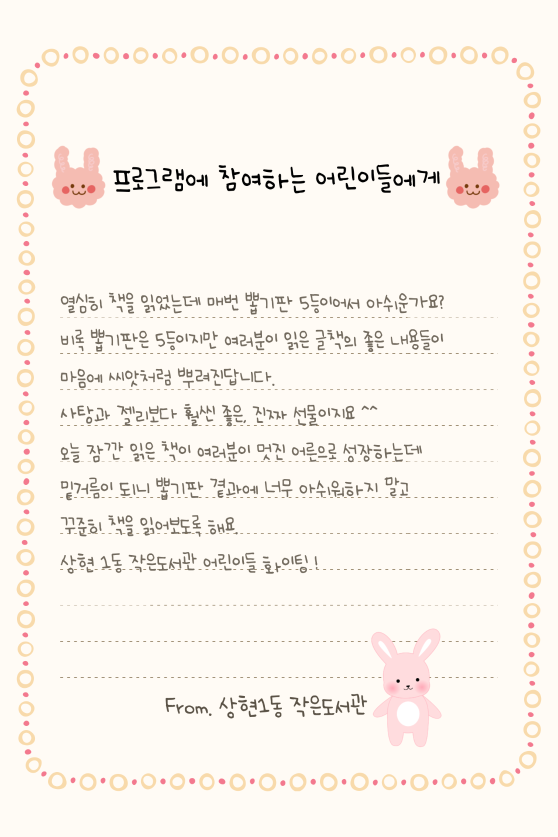 프로그램에 참여하는 어린이들에게
열심히 책을 읽었는데 매번 뽑기판 5등이어서 아쉬운가요?
비록 뽑기판은 5등이지만 여러분이 읽은 글책의 좋은 내용들이
마음에 씨앗처럼 뿌려진답니다.
사탕과 젤리보다 훨씬 좋은, 진짜 선물이지요 ^^
오늘 잠깐 읽은 책이 여러분이 멋진 어른으로 성장하는데
밑거름이 되니 뽑기판 결과에 너무 아쉬워하지 말고
꾸준히 책을 읽어보도록 해요.
상현 1동 작은도서관 어린이들 화이팅!
From. 상현1동 작은도서관